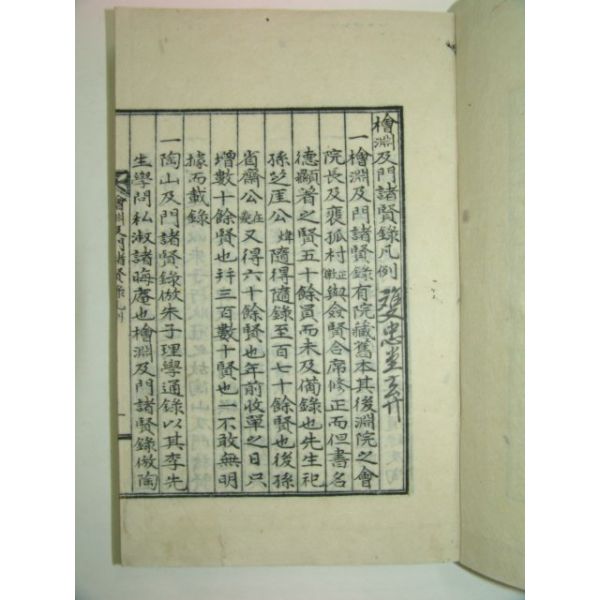 檜淵及門諸賢錄凡例
雙忠堂
一檜淵及門諸賢錄有院藏舊本其後淵院之會
院長及裵孤村正徽與僉賢合席修正而但書名
德顯著之賢五十餘員而未及備錄也先生祀
孫芝厓公煒隨得隨錄至百七十餘賢也後孫
省齋公在夔又得六十餘賢也年前收單之日只
增數十餘賢也幷三百數十賢也一不敢無明
據而載錄
一陶山及門諸賢錄倣朱子理學通錄以其李先
生學問私淑諸晦庵也檜淵及門諸賢錄倣陶
檜淵及門諸賢錄凡例
一